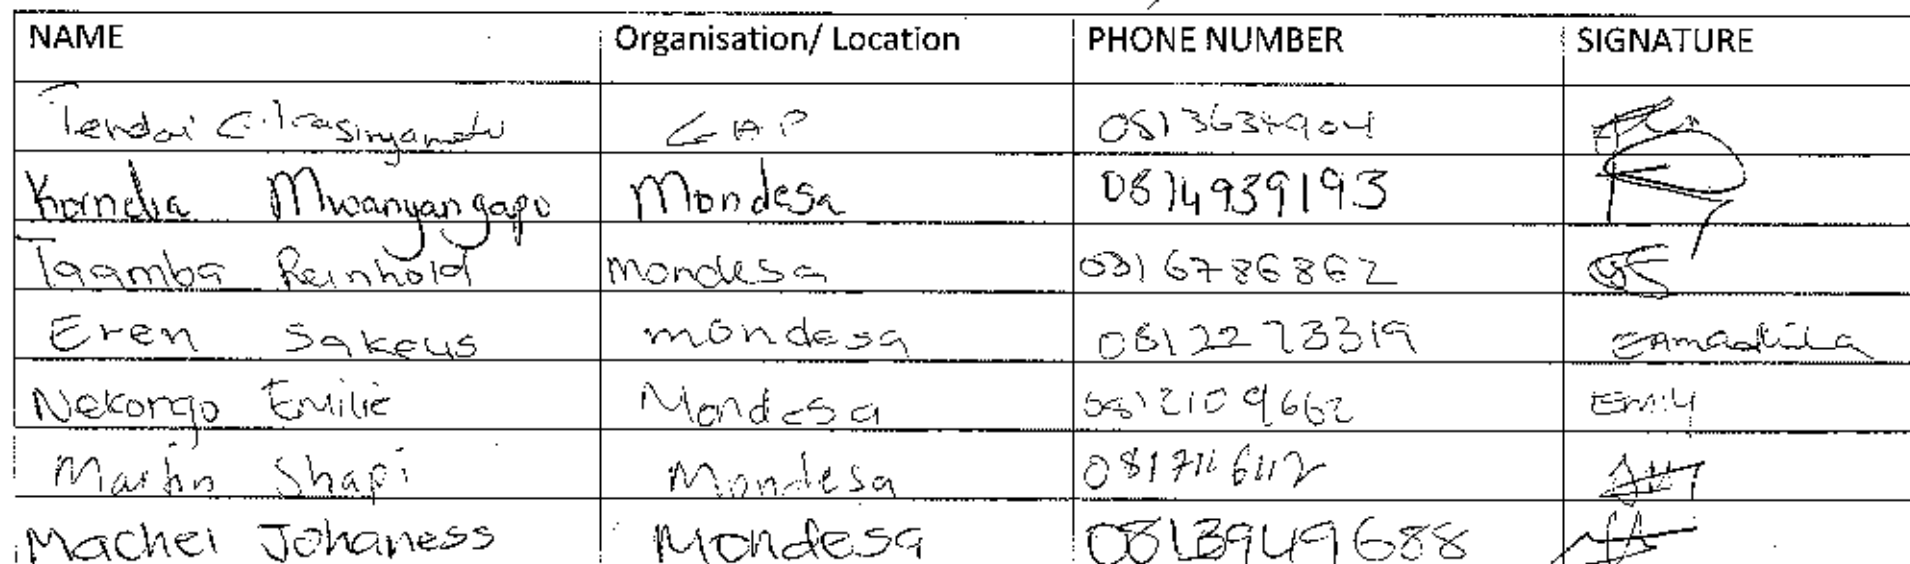 NAME Organisation/ Location PHONE NUMBER SIGNATURE
Tendai C.
Kornelia Mwanyangapo Mondesa 0814939193
Taamba Reinhold Mondesa 0816786862
Eren Sakeus mondesa 0812273319
Nekongo Emilie Mondesa 0812109662 Emily
Martin Shapi Mondesa 0817116112
Machei Johaness Mondesa 0813949688